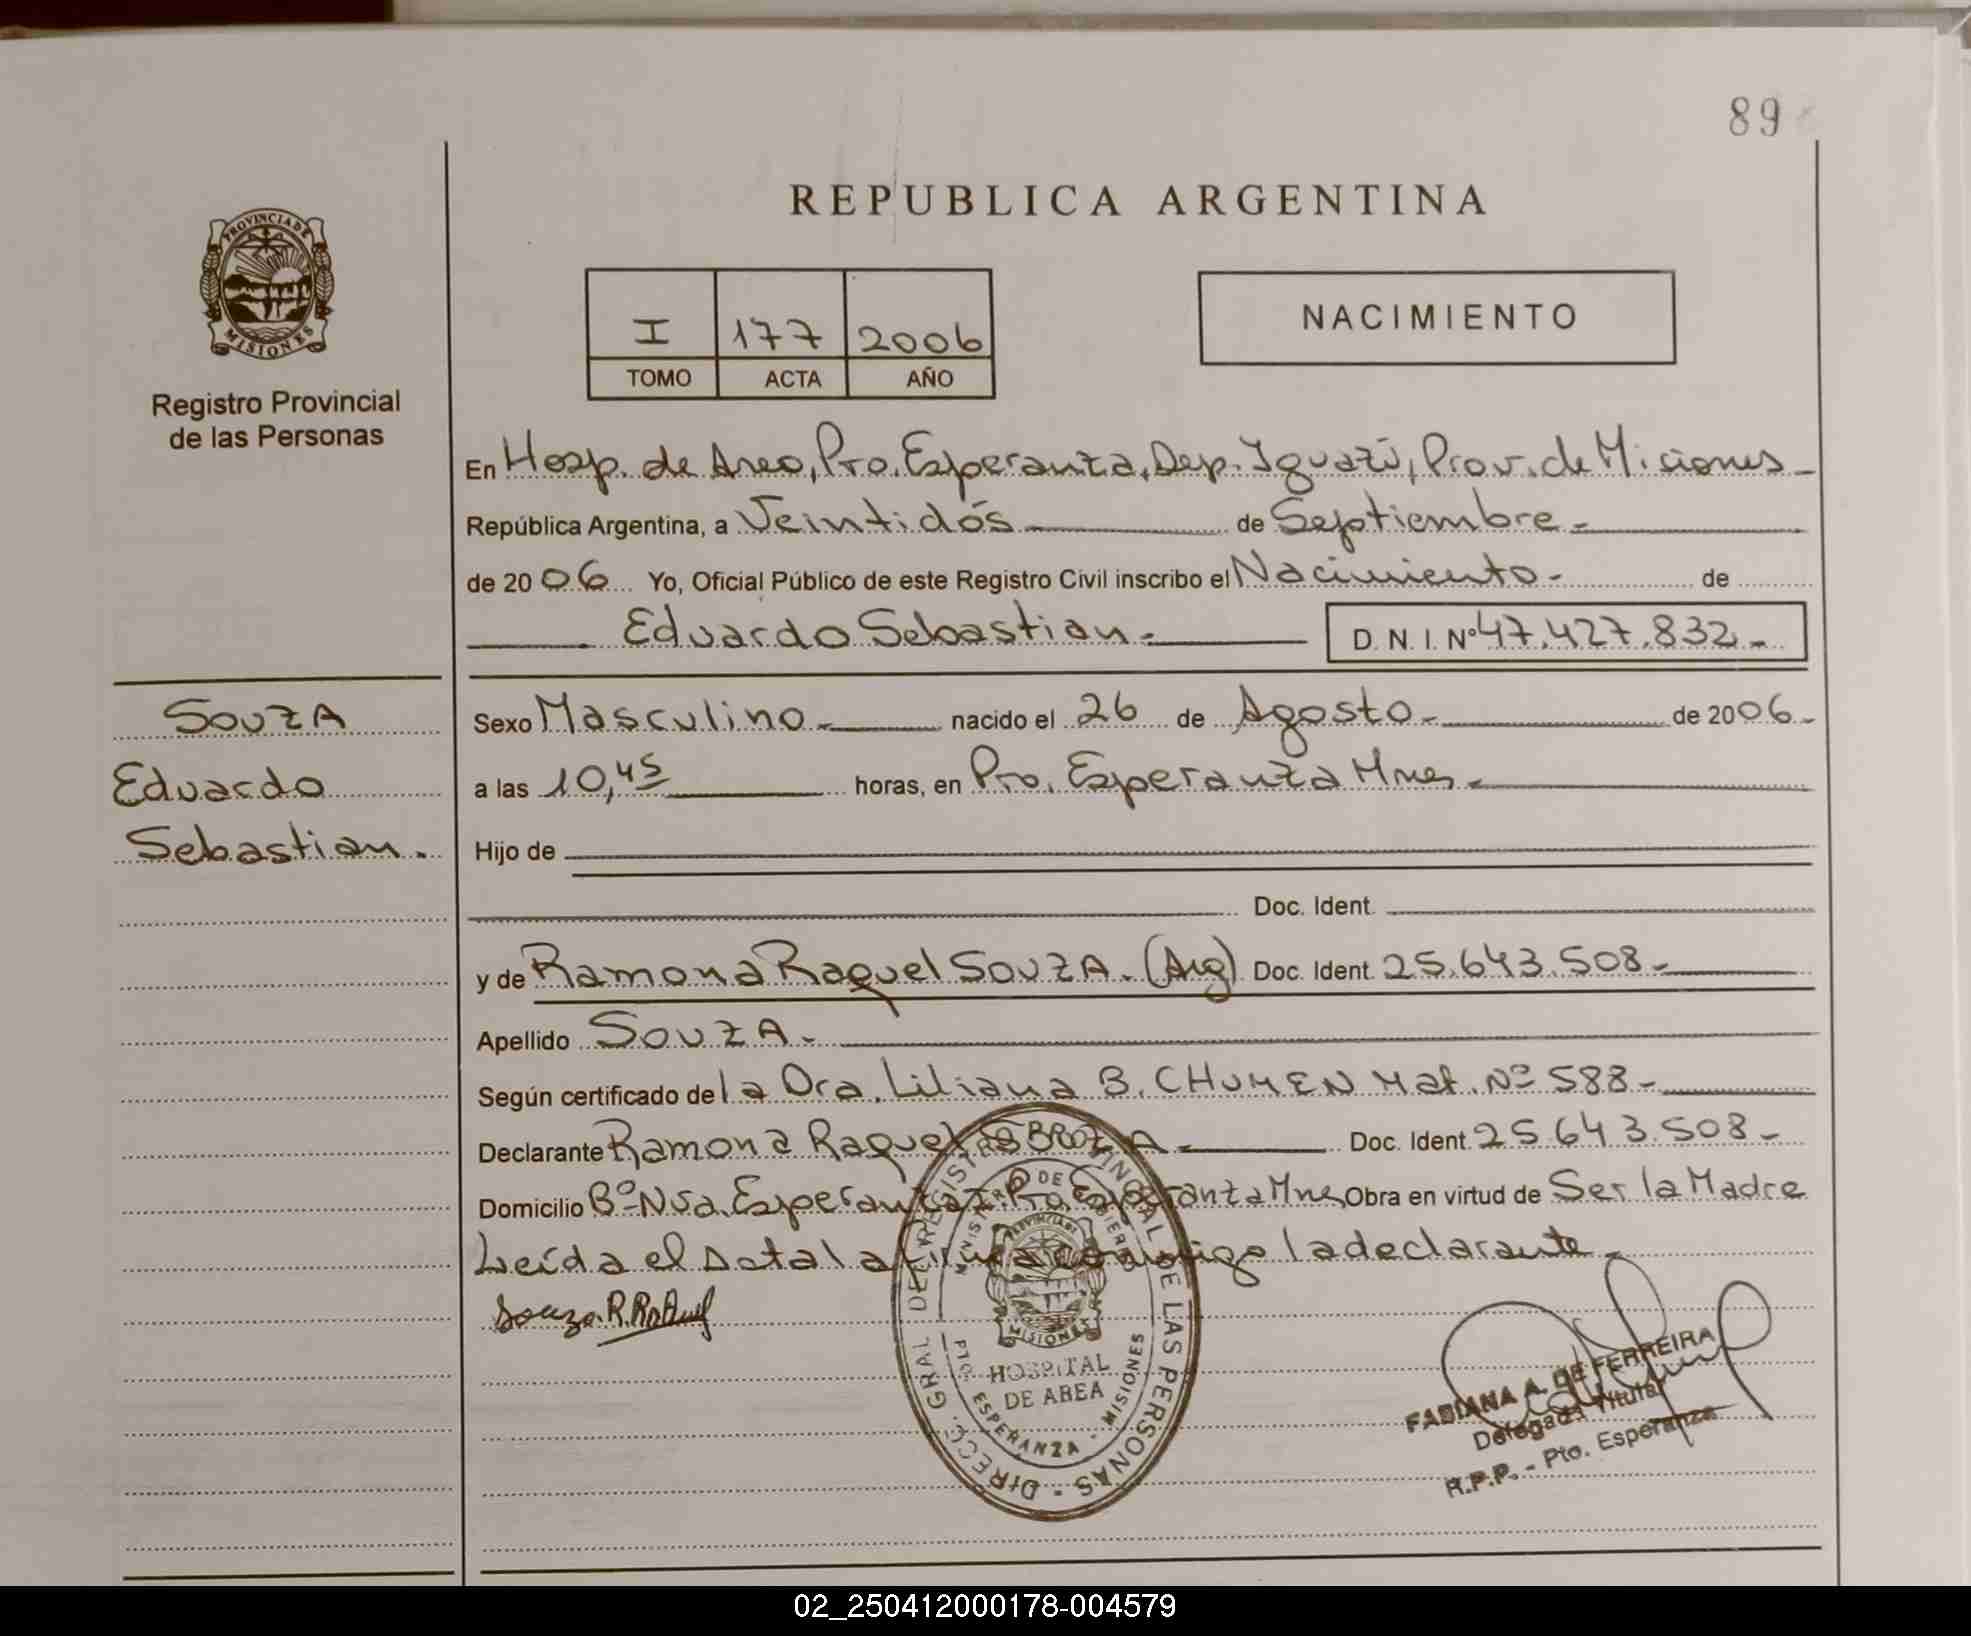 89
REPUBLICA ARGENTINA
PROVINCIA DE
MISIONES
Registro Provincial
de las Personas
I 177 2006
TOMO ACTA AÑO
NACIMIENTO
En Hosp. de Area, Pto. Esperanza, Dep. Iguazú, Prov. de Misiones
República Argentina, a Veintidós de Septiembre
de 2006 Yo, Oficial Público de este Registro Civil inscribo el Nacimiento de
Eduardo Sebastian
D. N. I. Nº 47.427.832
SOUZA
Eduardo
Sebastian.
Sexo Masculino nacido el 26 de Agosto de 2006
a las 10,45 horas, en Pto. Esperanza Mnes
Hijo de
Doc. Ident.
y de Ramona Raquel SOUZA. (Arg) Doc. Ident. 25.643.508
Apellido SOUZA
Según certificado de la Dra. Liliana B. CHUMEN Mat. Nº 588
Declarante Ramona Raquel Doc. Ident. 25.643.508
Domicilio Bº Nva. Esperanza Pto. Esperanza Mnes Obra en virtud de Ser la Madre
Leída el Acta la firma conmigo la declarante
Souza. R. Raquel
DIRECC. GRAL DEL REGISTRO PROVINCIAL DE LAS PERSONAS
MINISTERIO DE GOBIERNO
PROVINCIA DE
MISIONES
HOSPITAL
DE AREA
PTO. ESPERANZA - MISIONES
FABIANA A. DE FERREIRA
Delegada Titular
R.P.P. - Pto. Esperanza
02_250412000178-004579